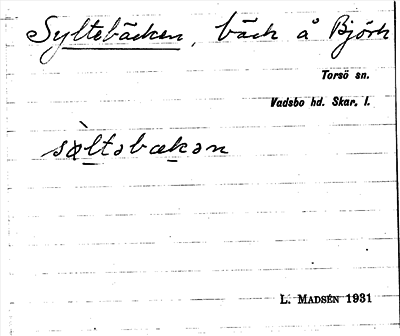 Syltebäcken, bäck å Björk
Torsö sn.
Vadsbo hd. Skar. l.
sæ̀ltəbækən
L. MADSÉN 1931